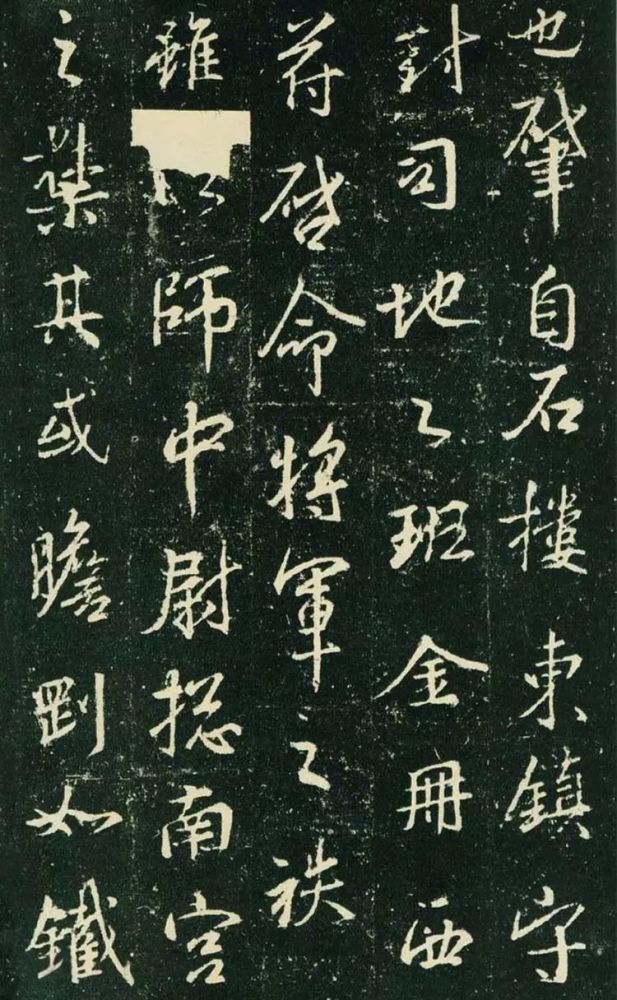 也肇自石楼東鎮守
封司地之班金冊西
符啓命將軍之秩
雖以師中尉揔南宫
之藥其或瞻剛如鐵